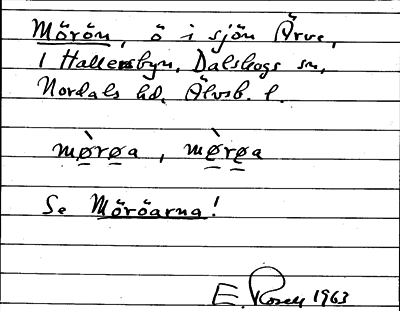 Mörön, ö i sjön Ärve,
i Hallersbyn, Dalskogs sn,
Nordals hd, Älvsb. l.
mø̀røa, mø̀røa
Se Möröarna!
E. Rosell 1963